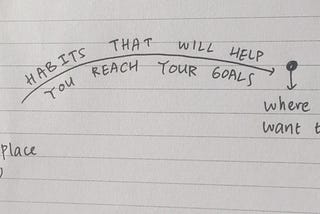 HABITS THAT WILL HELP
YOU REACH YOUR GOALS
where
want t
place